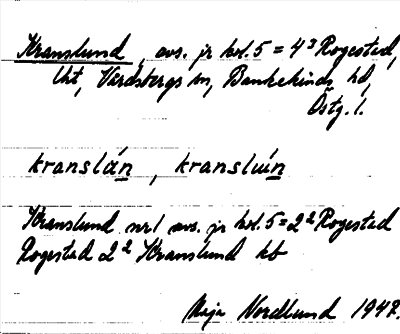 Kranslund, avs. jr kol. 5 = 4³ Rogestad,
lht, Värdsbergs sn, Bankekinds hd,
Östg. l.
kranslán, kranslún
Kranslund nr 1 avs. jr kol. 5 = 2² Rogestad
Rogestad 2² Kranslund kb
Maja Nordlund 1947.